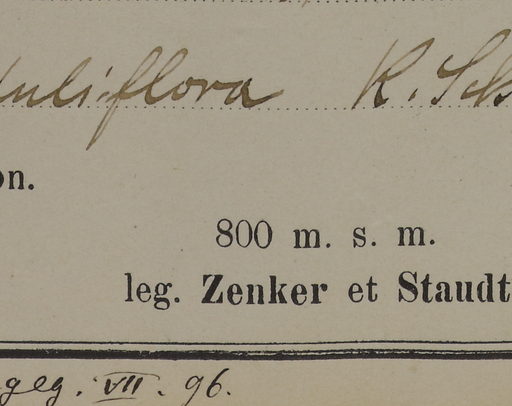 uliflora K. Sch
on.
800 m. s. m.
leg. Zenker et Staudt
geg. VII. 96.